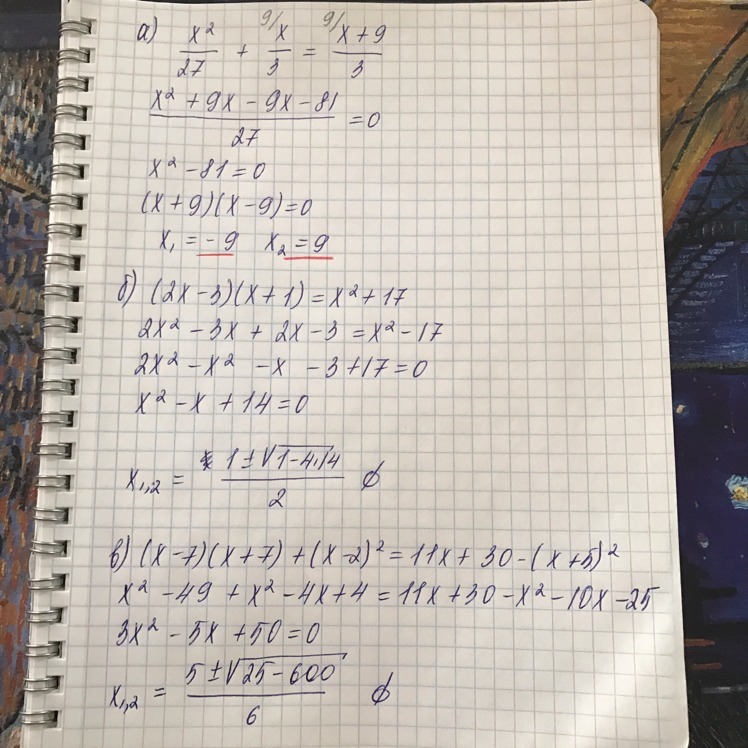 а) x²/27 + ⁹/x/3 = ⁹/x+9/3
x² + 9x - 9x - 81/27 = 0
x² - 81 = 0
(x+9)(x-9)=0
x₁ = -9 x₂ = 9
б) (2x-3)(x+1) = x²+17
2x² - 3x + 2x - 3 = x² - 17
2x² - x² - x - 3 + 17 = 0
x² - x + 14 = 0
x₁,₂ = 1±√1-4·14/2 ∅
в) (x-7)(x+7) + (x-2)² = 11x + 30 - (x+5)²
x² - 49 + x² - 4x + 4 = 11x + 30 - x² - 10x - 25
3x² - 5x + 50 = 0
x₁,₂ = 5±√25-600/6 ∅